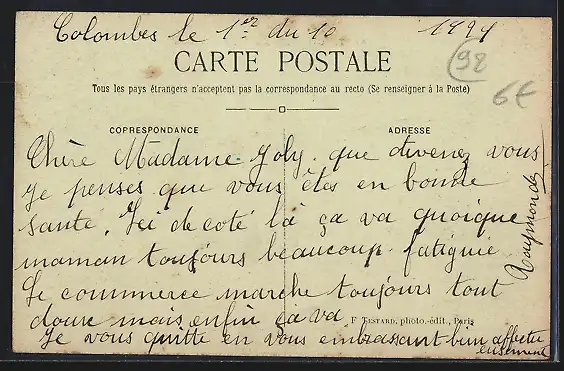 Colombes le 1er du 10 1924
CARTE POSTALE
98
Tous les pays étrangers n'acceptent pas la correspondance au recto (Se renseigner à la Poste)
6€
CORRESPONDANCE
ADRESSE
Chère Madame Joly. que devenez vous
je penses que vous êtes en bonne
santé. Ici de coté là ça va quoique
maman toujours beaucoup fatiguée
Le commerce marche toujours tout
doux mais enfin ça va.
F. FUSTARD, photo.-édit., Paris
Je vous quitte en vous embrassant bien affectu
eusement
Raymonde